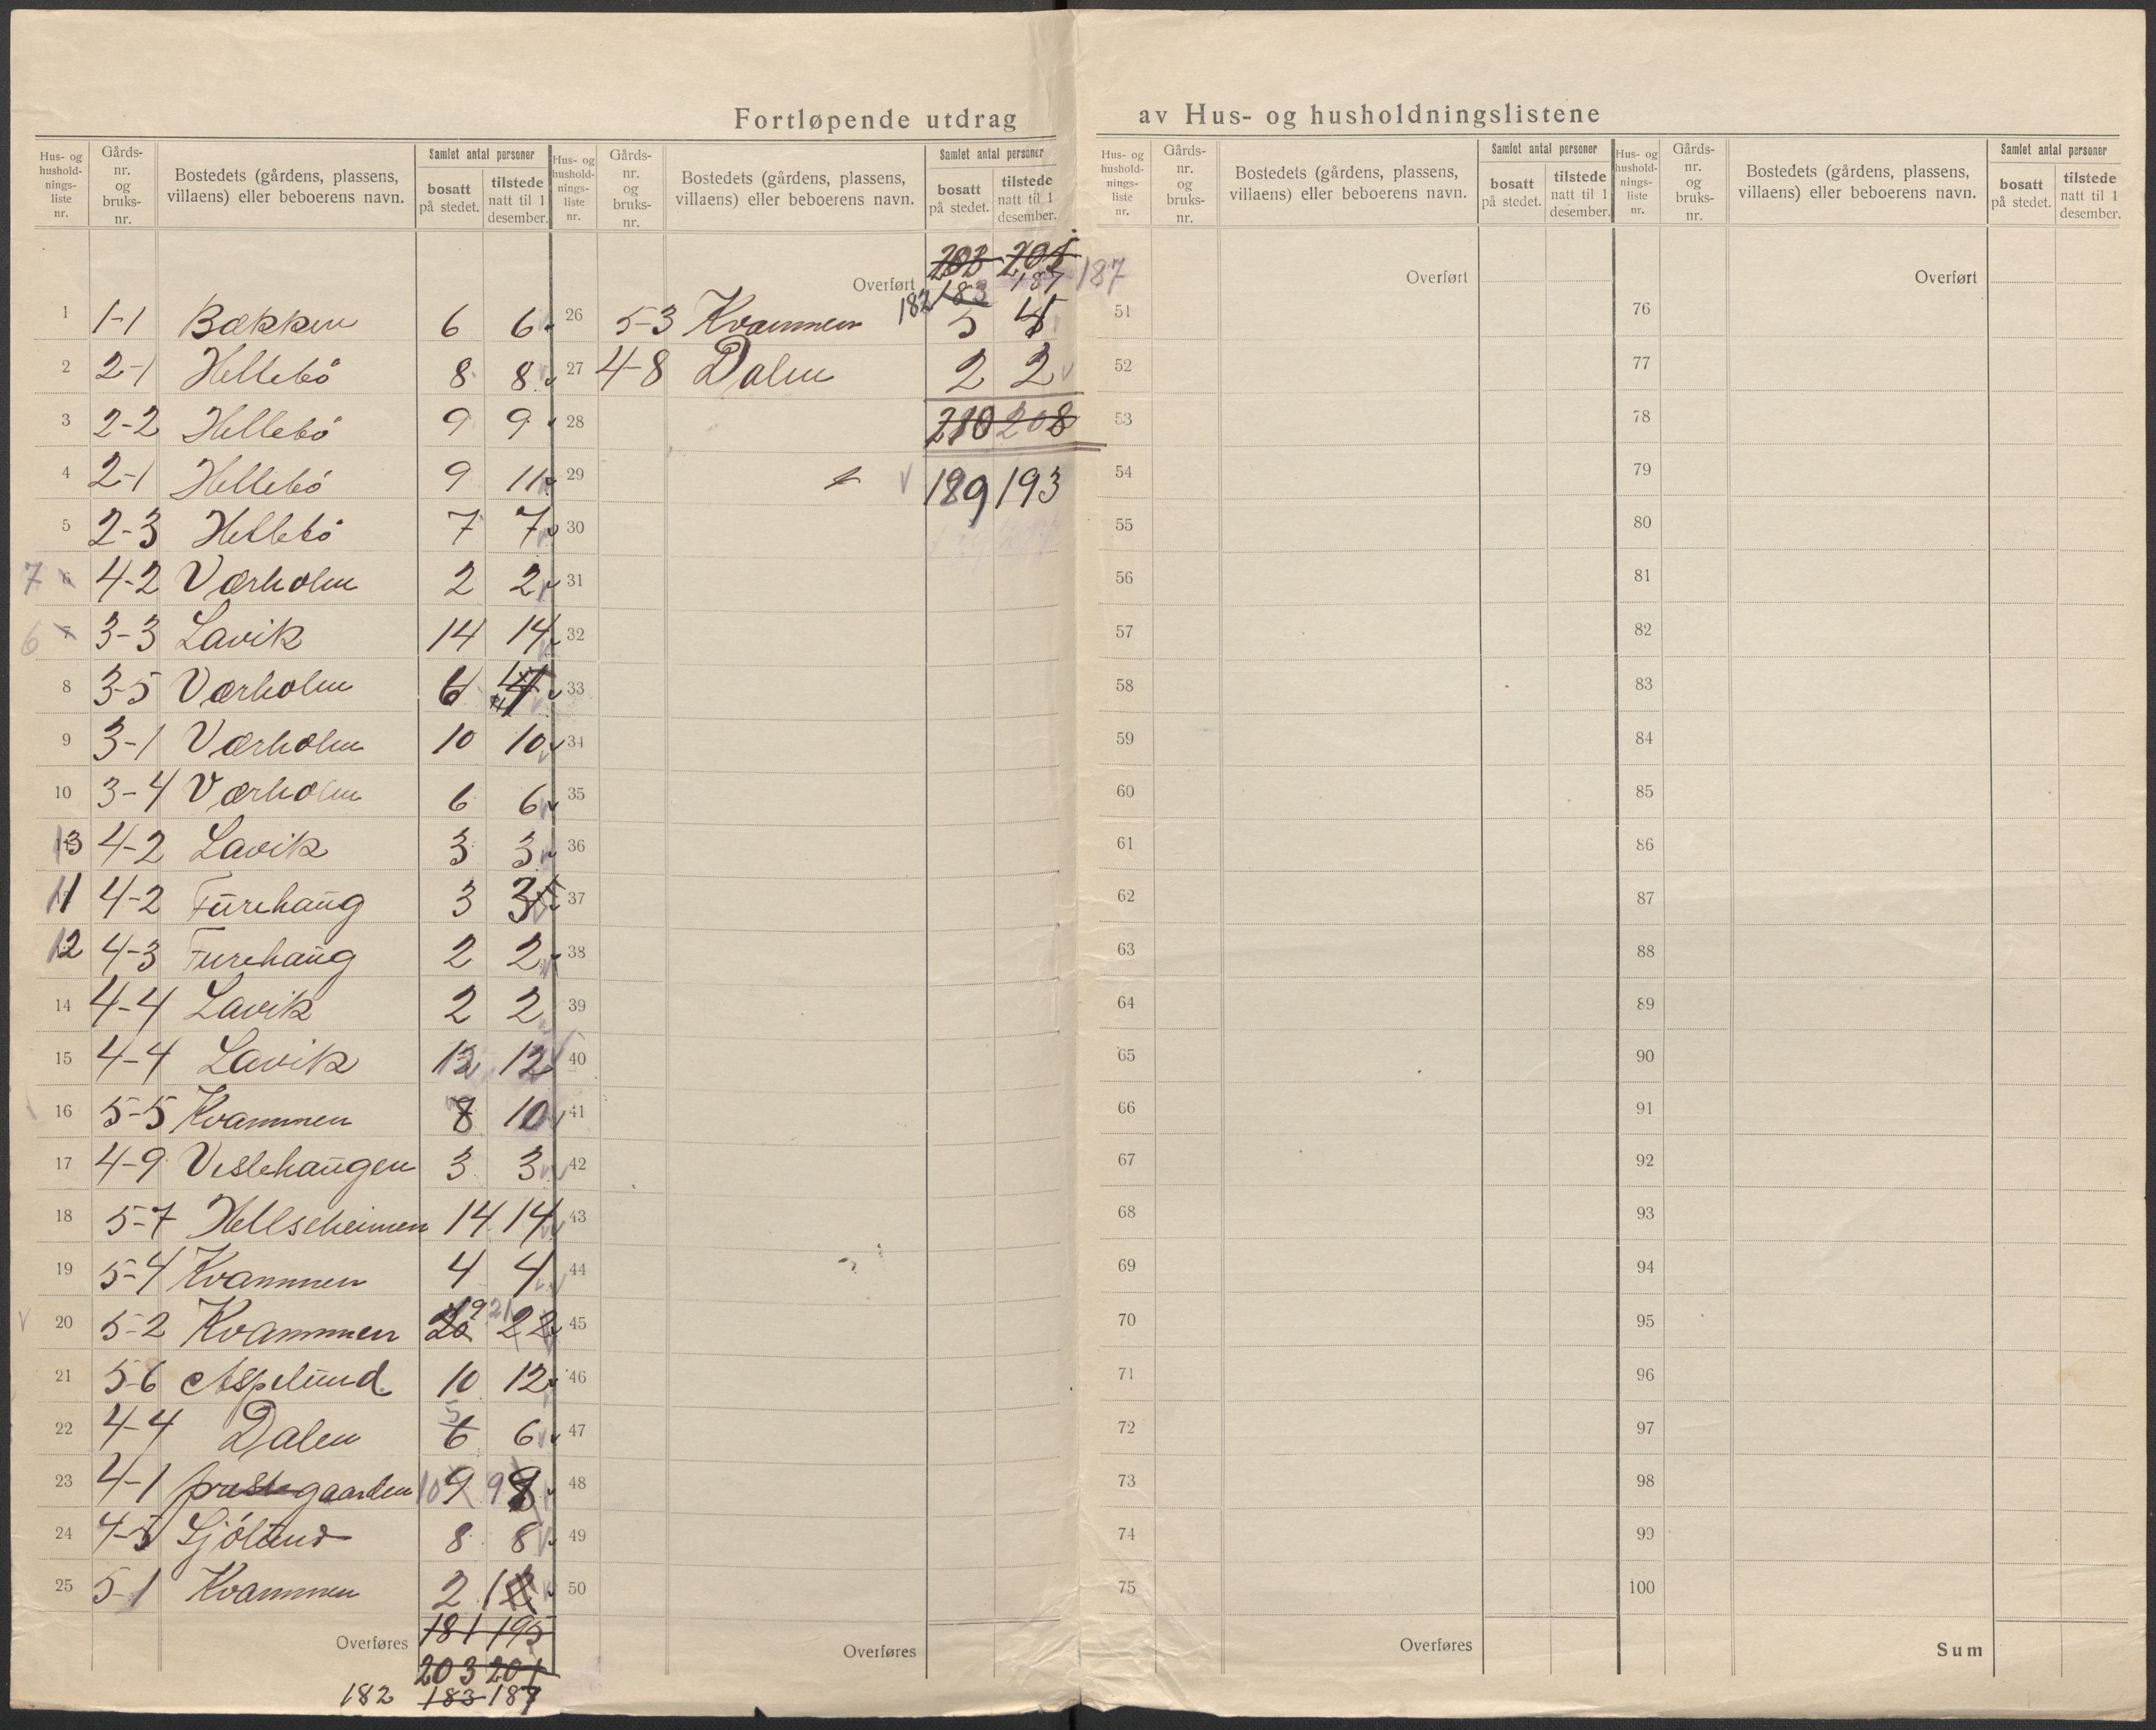 Fortløpende utdrag av Hus- og husholdningslistene
Hus- og husholdnings-liste nr. Gårds-nr. og bruks-nr. Bostedets (gårdens, plassens, villaens) eller beboerens navn. Samlet antal personer bosatt på stedet. tilstede natt til 1 desember.
1 1-1 Bakken 6 6
2 2-1 Hellebö 8 8
3 2-2 Hellebö 9 9
4 2-1 Hellebö 9 11
5 2-3 Hellebö 7 7
7 6 4-2 Værholm 2 2
6 7 3-3 Lavik 14 14
8 3-5 Værholm 6 4
9 3-1 Værholm 10 10
10 3-4 Værholm 6 6
13 4-2 Lavik 3 3
11 4-2 Furehaug 3 3
12 4-3 Furehaug 2 2
14 4-4 Lavik 2 2
15 4-4 Lavik 12 12
16 5-5 Kvammen 8 10
17 4-9 Veslehaugen 3 3
18 5-7 Hellseheimen 14 14
19 5-4 Kvammen 4 4
20 5-2 Kvammen 20 19 21 22
21 5-6 Aspelund 10 12
22 4-4 Dalen 5 6 6
23 4-1 prestegaarden 10 9 9 8
24 4-5 Sjölund 8 8
25 5-1 Kvammen 2
Overføres 181 195
203 201
182 183 187
Hus- og husholdnings-liste nr. Gårds-nr. og bruks-nr. Bostedets (gårdens, plassens, villaens) eller beboerens navn. Samlet antal personer bosatt på stedet. tilstede natt til 1 desember.
203 201
Overført 182 183 187 187
26 5-3 Kvammen 5 4
27 4-8 Dalen 2 2
28 210 208
29 189 193
30
31
32
33
34
35
36
37
38
39
40
41
42
43
44
45
46
47
48
49
50
Overføres
Hus- og husholdnings-liste nr. Gårds-nr. og bruks-nr. Bostedets (gårdens, plassens, villaens) eller beboerens navn. Samlet antal personer bosatt på stedet. tilstede natt til 1 desember.
Overført
51
52
53
54
55
56
57
58
59
60
61
62
63
64
65
66
67
68
69
70
71
72
73
74
75
Overføres
Hus- og husholdnings-liste nr. Gårds-nr. og bruks-nr. Bostedets (gårdens, plassens, villaens) eller beboerens navn. Samlet antal personer bosatt på stedet. tilstede natt til 1 desember.
Overført
76
77
78
79
80
81
82
83
84
85
86
87
88
89
90
91
92
93
94
95
96
97
98
99
100
Sum